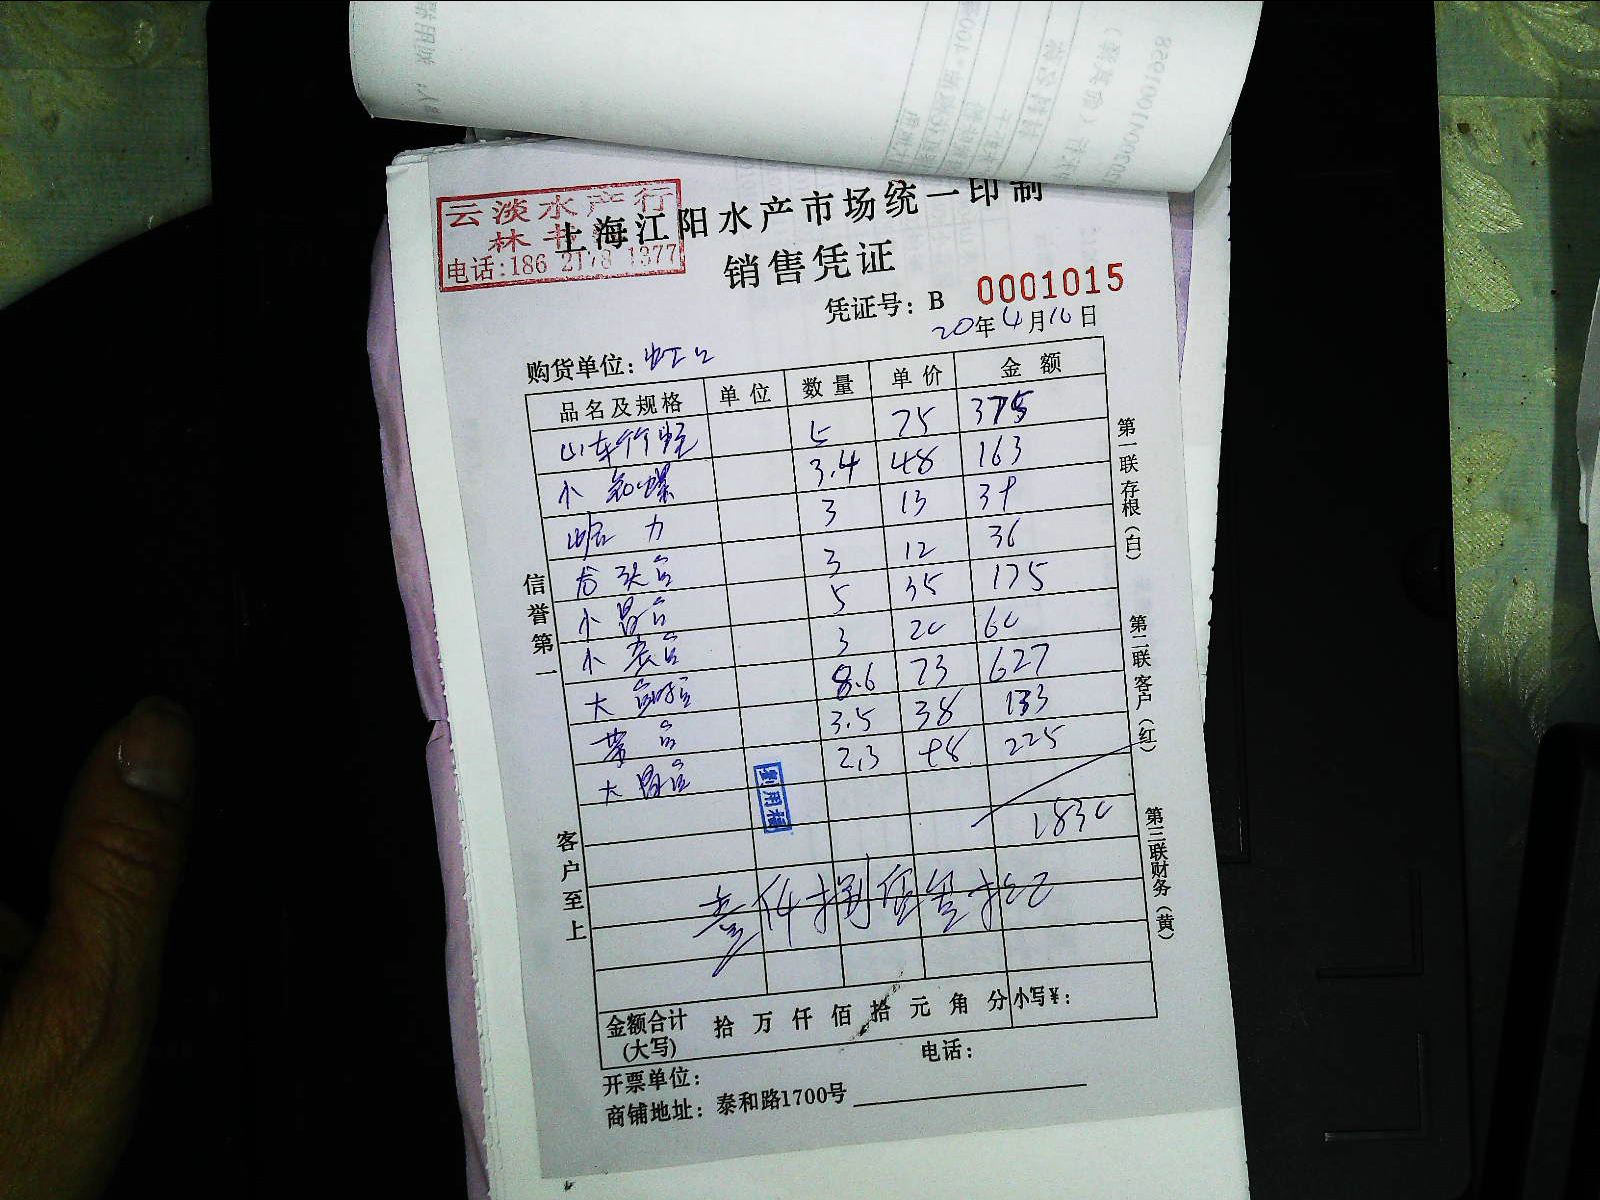 云淡水产行
林书
电话:186 2178 1377
上海江阳水产市场统一印制
销售凭证
凭证号: B 0001015
20年4月16日
购货单位: 虹口
品名及规格 单位 数量 单价 金额
山东竹蛏 5 75 375
小 3.4 48 163
哈力 3 13 39
龙头 3 12 36
小昌 5 35 175
小 3 20 60
大 8.6 73 627
带 3.5 38 133
大昌 2.3 98 225
1830
壹仟捌佰叁拾元
金额合计(大写) 拾 万 仟 佰 拾 元 角 分 小写¥:
开票单位: 电话:
商铺地址: 泰和路1700号
信誉第一
客户至上
第一联存根(白)
第二联客户(红)
第三联财务(黄)